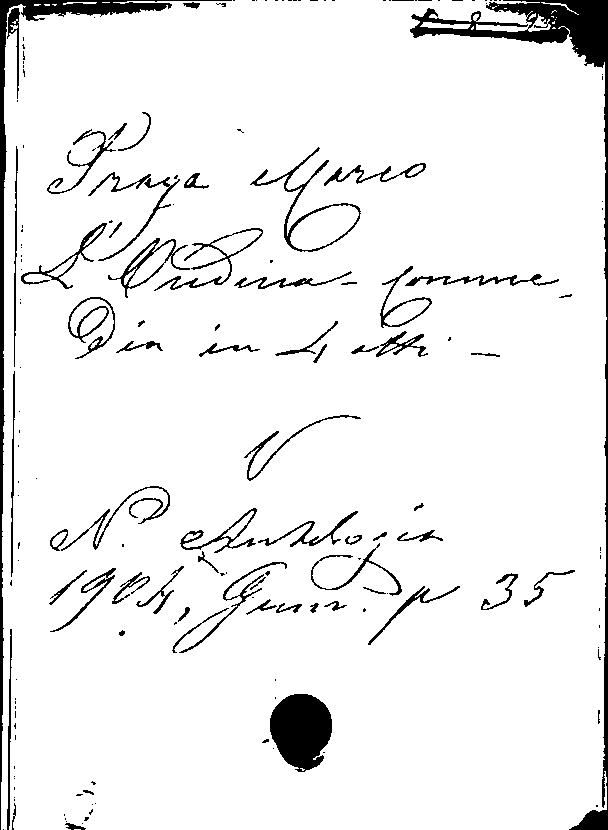 Praga Marco
L'Ondina - comme_
dia in 4 atti -
V
N. Antologia
1904, Genn. p 35